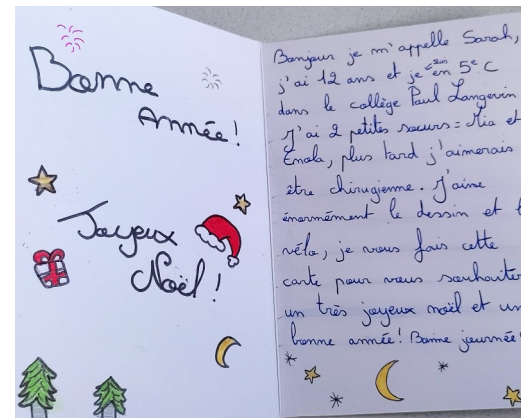 Bonne
Année!
Joyeux
Noël!
Bonjour je m'appelle Sarah,
j'ai 12 ans et je suis en 5e C
dans le collège Paul Langevin
J'ai 2 petites sœurs : Mia et
Enola, plus tard j'aimerais
être chirugienne. J'aime
énormément le dessin et l
vélo, je vous fais cette
carte pour vous souhaiter
un très joyeux noël et un
bonne année! Bonne journée!